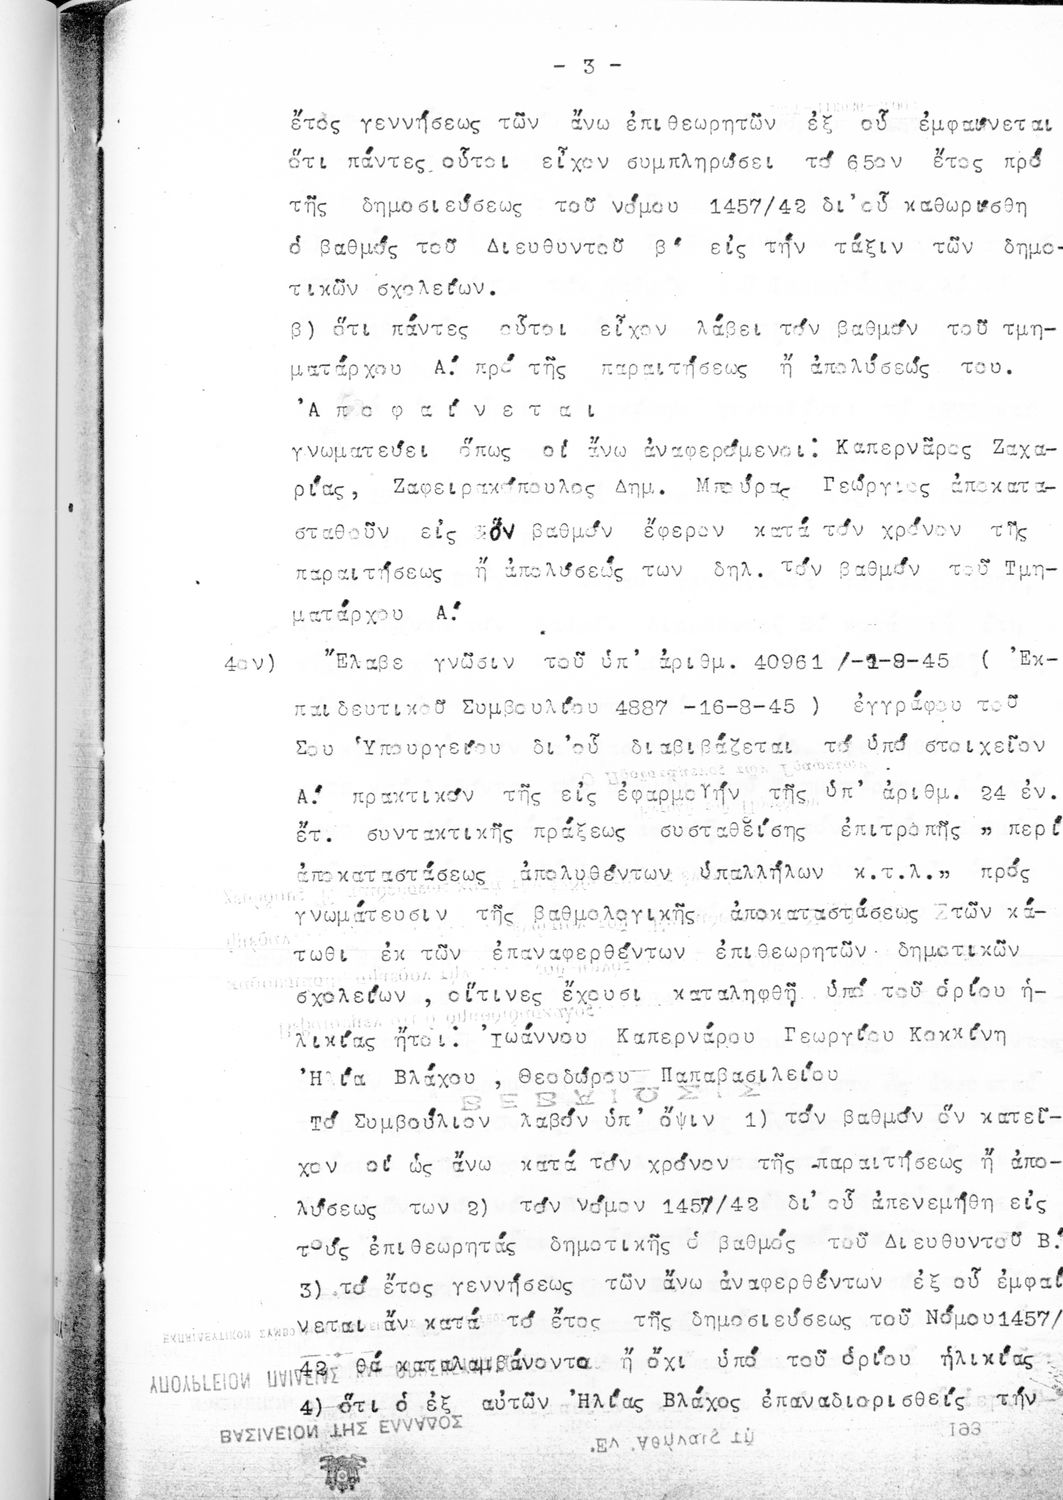 - 3 -
ἔτος γεννήσεως τῶν ἄνω ἐπιθεωρητῶν ἐξ οὗ ἐμφαίνεται
ὅτι πάντες οὗτοι εἶχον συμπληρώσει τό 65ον ἔτος πρό
τῆς δημοσιεύσεως τοῦ νόμου 1457/42 δι'οὗ καθωρίσθη
ὁ βαθμός τοῦ Διευθυντοῦ β' εἰς τήν τάξιν τῶν δημο-
τικῶν σχολείων.
β) ὅτι πάντες οὗτοι εἶχον λάβει τόν βαθμόν τοῦ τμη-
ματάρχου Α! πρό τῆς παραιτήσεως ἤ ἀπολύσεώς του.
'Α π ο φ α ί ν ε τ α ι
γνωματεύει ὅπως οἱ ἄνω ἀναφερόμενοι: Καπερνᾶρος Ζαχα-
ρίας, Ζαφειρακόπουλος Δημ. Μπούρας Γεώργιος ἀποκατα-
σταθοῦν εἰς ὅν βαθμόν ἔφερον κατά τόν χρόνον τῆς
παραιτήσεως ἤ ἀπολύσεώς των δηλ. τόν βαθμόν τοῦ Τμη-
ματάρχου Α!
4ον) Ἔλαβε γνῶσιν τοῦ ὑπ' ἀριθμ. 40961 /-1-8-45 ( Ἐκ-
παιδευτικοῦ Συμβουλίου 4887 -16-8-45 ) ἐγγράφου τοῦ
Σου Ὑπουργείου δι'οὗ διαβιβάζεται τό ὑπό στοιχεῖον
Α! πρακτικόν τῆς εἰς ἐφαρμογήν τῆς ὑπ' ἀριθμ. 24 ἐν.
ἔτ. συντακτικῆς πράξεως συσταθείσης ἐπιτροπῆς „ περί
ἀποκαταστάσεως ἀπολυθέντων ὑπαλλήλων κ.τ.λ.„ πρός
γνωμάτευσιν τῆς βαθμολογικῆς ἀποκαταστάσεως τῶν κά-
τωθι ἐκ τῶν ἐπαναφερθέντων ἐπιθεωρητῶν δημοτικῶν
σχολείων , οἵτινες ἔχουσι καταληφθῆ ὑπό τοῦ ὁρίου ἡ-
λικίας ἤτοι: Ἰωάννου Καπερνάρου Γεωργίου Κοκκίνη
Ἡλία Βλάχου , Θεοδώρου Παπαβασιλείου
Τό Συμβούλιον λαβόν ὑπ' ὄψιν 1) τόν βαθμόν ὅν κατεῖ-
χον οἱ ὡς ἄνω κατά τόν χρόνον τῆς παραιτήσεως ἤ ἀπο-
λύσεως των 2) τόν νόμον 1457/42 δι' οὗ ἀπενεμήθη εἰς
τούς ἐπιθεωρητάς δημοτικῆς ὁ βαθμός τοῦ Διευθυντοῦ Β!
3) τό ἔτος γεννήσεως τῶν ἄνω ἀναφερθέντων ἐξ οὗ ἐμφαί
νεται ἄν κατά τό ἔτος τῆς δημοσιεύσεως τοῦ Νόμου1457/
42 θά καταλαμβάνοντο ἤ ὄχι ὑπό τοῦ ὁρίου ἡλικίας
4) ὅτι ὁ ἐξ αὐτῶν Ἡλίας Βλάχος ἐπαναδιορισθείς τήν